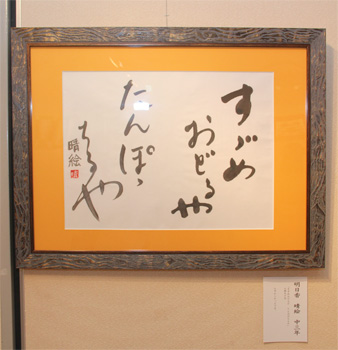 すゞめ
おどるや
たんぽゝ
ちるや
晴絵
明日香 晴絵 中三年